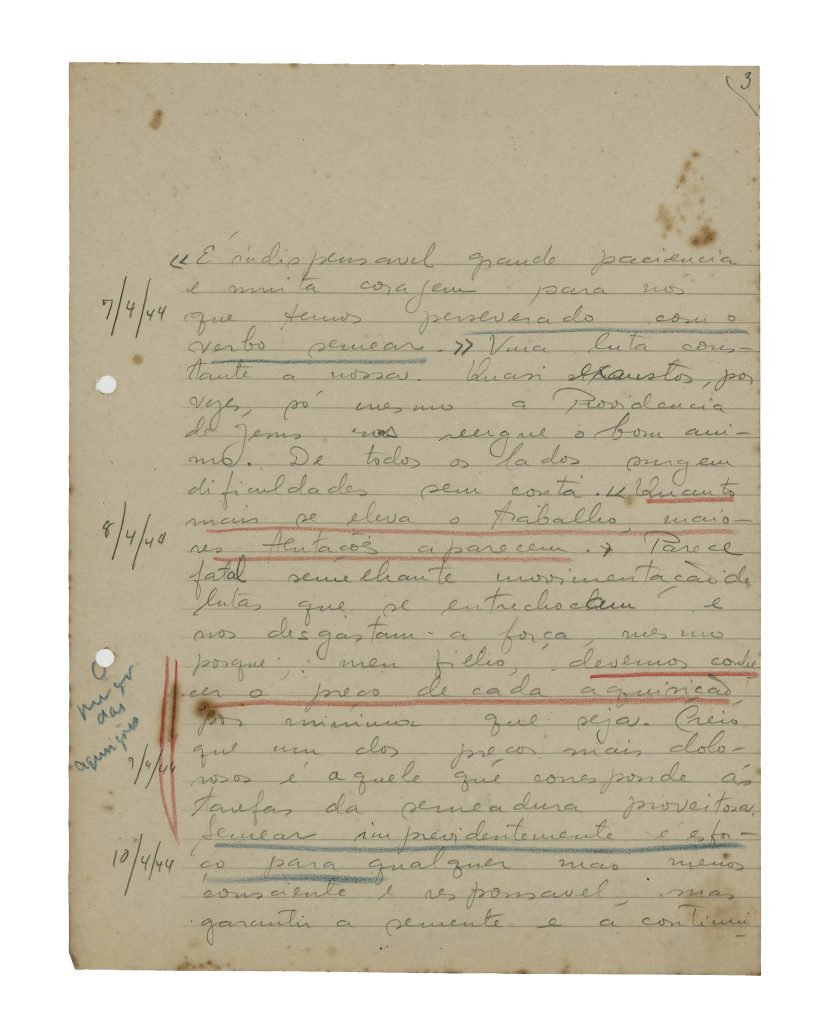 3
« É indispensavel grande paciencia
e muita coragem para nós
7/4/44
que temos perseverado com o
verbo semear. » Uma luta cons-
tante a nossa. Quasi exaustos, por
vezes, só mesmo a Providencia
de Jesus nos reergue o bom ani-
mo. De todos os lados surgem
dificuldades sem conta. « Quanto
8/4/44
mais se eleva o trabalho, maio-
res tentações aparecem. » Parece
fatal semelhante movimentação de
lutas que se entrechocam e
nos desgastam a força, mesmo
porque, meu filho, devemos conhe
cer o preço de cada aquisição,
O
preço
das
aquisições
por minima que seja. Creio
que um dos preços mais dolo-
9/4/44
rosos é aquele que corresponde ás
tarefas da semeadura proveitosa.
Semear imprevidentemente é esfor-
10/4/44
ço para qualquer mao menos
consciente e responsavel, mas
garantir a semente e a continui-